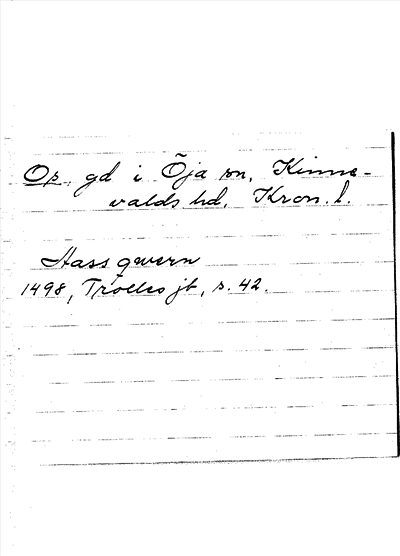 Op. gd i Öja sn, Kinne-
valds hd, Kron. l.
Hass qwern
1498, Trolles jb, s. 42.